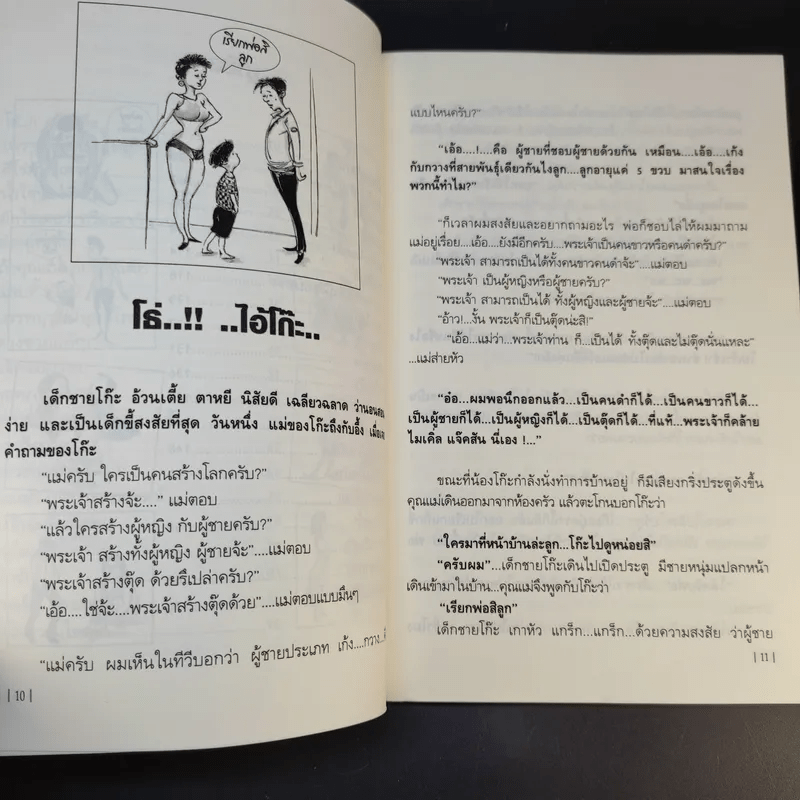 เรียกพ่อสิ
ลูก
โธ่..!! ..ไอ้โก๊ะ..
เด็กชายโก๊ะ อ้วนเตี้ย ตาหยี นิสัยดี เฉลียวฉลาด ว่านอนสอน
ง่าย และเป็นเด็กขี้สงสัยที่สุด วันหนึ่ง แม่ของโก๊ะถึงกับอึ้ง เมื่อเจอ
คำถามของโก๊ะ
"แม่ครับ ใครเป็นคนสร้างโลกครับ?"
"พระเจ้าสร้างจ้ะ...." แม่ตอบ
"แล้วใครสร้างผู้หญิง กับผู้ชายครับ?"
"พระเจ้า สร้างทั้งผู้หญิง ผู้ชายจ้ะ"....แม่ตอบ
"พระเจ้าสร้างตุ๊ด ด้วยรึเปล่าครับ?"
"เอ้อ....ใช่จ้ะ....พระเจ้าสร้างตุ๊ดด้วย"....แม่ตอบแบบมึนๆ
"แม่ครับ ผมเห็นในทีวีบอกว่า ผู้ชายประเภท เก้ง....กวาง...
| 10 |
แบบไหนครับ?"
"เอ้อ....!....คือ ผู้ชายที่ชอบผู้ชายด้วยกัน เหมือน....เอ้อ....เก้ง
กับกวางที่สายพันธุ์เดียวกันไงลูก....ลูกอายุแค่ 5 ขวบ มาสนใจเรื่อง
พวกนี้ทำไม?"
"ก็เวลาผมสงสัยและอยากถามอะไร พ่อก็ชอบไล่ให้ผมมาถาม
แม่อยู่เรื่อย....เอ้อ....ยังมีอีกครับ....พระเจ้าเป็นคนขาวหรือคนดำครับ?"
"พระเจ้า สามารถเป็นได้ทั้งคนขาวคนดำจ้ะ"....แม่ตอบ
"พระเจ้า เป็นผู้หญิงหรือผู้ชายครับ?"
"พระเจ้า สามารถเป็นได้ ทั้งผู้หญิงและผู้ชายจ้ะ"....แม่ตอบ
"อ้าว!...งั้น พระเจ้าก็เป็นตุ๊ดน่ะสิ!"
"เอ้อ...แม่ว่า...พระเจ้าท่าน ก็...เป็นได้ ทั้งตุ๊ดและไม่ตุ๊ดนั่นแหละ"
...แม่ส่ายหัว
"อ๋อ...ผมพอนึกออกแล้ว...เป็นคนดำก็ได้...เป็นคนขาวก็ได้...
เป็นผู้ชายก็ได้...เป็นผู้หญิงก็ได้...เป็นตุ๊ดก็ได้...ที่แท้...พระเจ้าก็คล้าย
ไมเคิ่ล แจ๊คสัน นี่เอง !..."
ขณะที่น้องโก๊ะกำลังนั่งทำการบ้านอยู่ ก็มีเสียงกริ่งประตูดังขึ้น
คุณแม่เดินออกมาจากห้องครัว แล้วตะโกนบอกโก๊ะว่า
"ใครมาที่หน้าบ้านล่ะลูก...โก๊ะไปดูหน่อยสิ"
"ครับผม"...เด็กชายโก๊ะเดินไปเปิดประตู มีชายหนุ่มแปลกหน้า
เดินเข้ามาในบ้าน...คุณแม่จึงพูดกับโก๊ะว่า
"เรียกพ่อสิลูก"
เด็กชายโก๊ะ เกาหัว แกร็ก...แกร็ก...ด้วยความสงสัย ว่าผู้ชาย
| 11 |